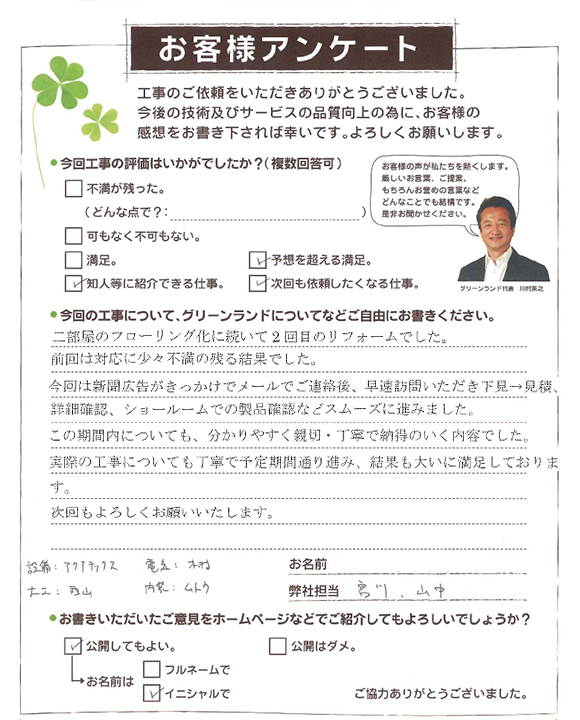 お客様アンケート
工事のご依頼をいただきありがとうございました。
今後の技術及びサービスの品質向上の為に、お客様の
感想をお書き下されば幸いです。よろしくお願いします。
●今回工事の評価はいかがでしたか?(複数回答可)
不満が残った。
(どんな点で?: )
可もなく不可もない。
満足。
予想を超える満足。
知人等に紹介できる仕事。
次回も依頼したくなる仕事。
お客様の声が私たちを熱くします。
厳しいお言葉、ご提案、
もちろんお誉めの言葉など
どんなことでも結構です。
是非お聞かせください。
グリーンランド代表 川村英之
●今回の工事について、グリーンランドについてなどご自由にお書きください。
二部屋のフローリング化に続いて2回目のリフォームでした。
前回は対応に少々不満の残る結果でした。
今回は新聞広告がきっかけでメールでご連絡後、早速訪問いただき下見→見積、
詳細確認、ショールームでの製品確認などスムーズに進みました。
この期間内についても、分かりやすく親切・丁寧で納得のいく内容でした。
実際の工事についても丁寧で予定期間通り進み、結果も大いに満足しておりま
す。
次回もよろしくお願いいたします。
設備: アクアテックス 電気: 木村
大工: 内装: ムトウ
お名前
弊社担当 宮川、山中
●お書きいただいたご意見をホームページなどでご紹介してもよろしいでしょうか?
公開してもよい。
公開はダメ。
お名前は
フルネームで
イニシャルで
ご協力ありがとうございました。